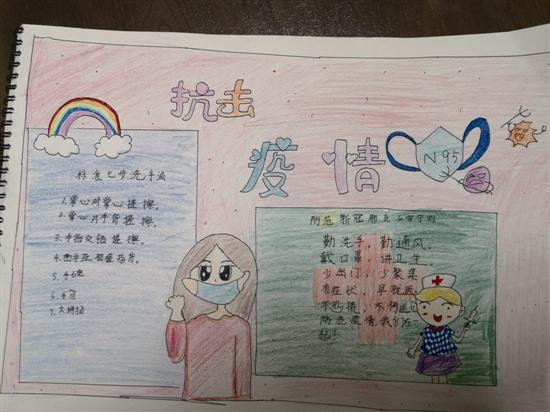 抗击
疫情
N95
标准七步洗手法
1.掌心对掌心搓擦。
2.掌心对手背搓擦。
3.手指交错搓擦。
4.两手互握
5.手
6.手
7.大拇指
防范新冠肺炎
勤洗手,勤通风。
戴口罩,讲卫生。
少出门,少聚集
有症状,早就医
不恐慌,不
防范疫情,我们在一
起!